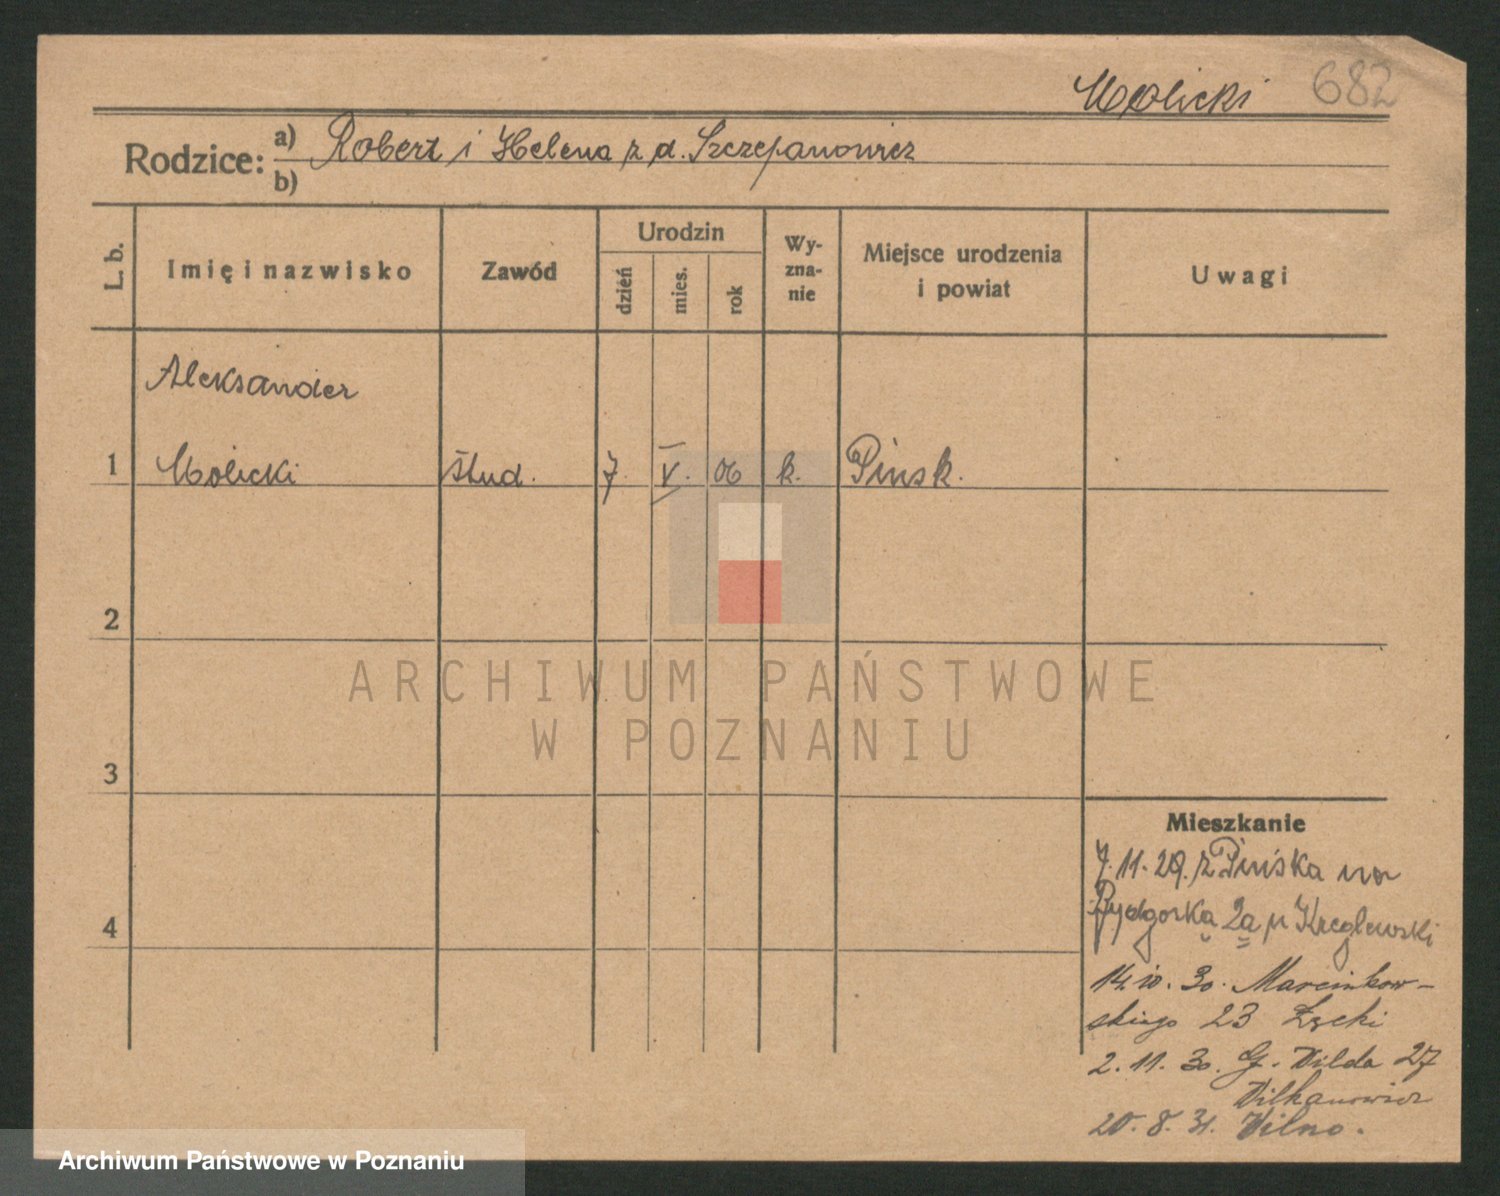 Wolicki 682
Rodzice: a) Robert i Helena z d. Szczepanowicz
b)
L. b.
Imię i nazwisko
Zawód
Urodzin
dzień
mies.
rok
Wy-
zna-
nie
Miejsce urodzenia
i powiat
Uwagi
Aleksander
1 Wolicki stud. 7. V. 06 k. Pinsk.
2
ARCHIWUM PAŃSTWOWE
W POZNANIU
3
Mieszkanie
7.11.29. z Pińska na
2a Kręglewski
4
14.10.30. Marcinkow-
skiego 23 Łącki
2.11.30. G. Wilda 27
Wilkanowicz
20.8.31. Wilno.
Archiwum Państwowe w Poznaniu